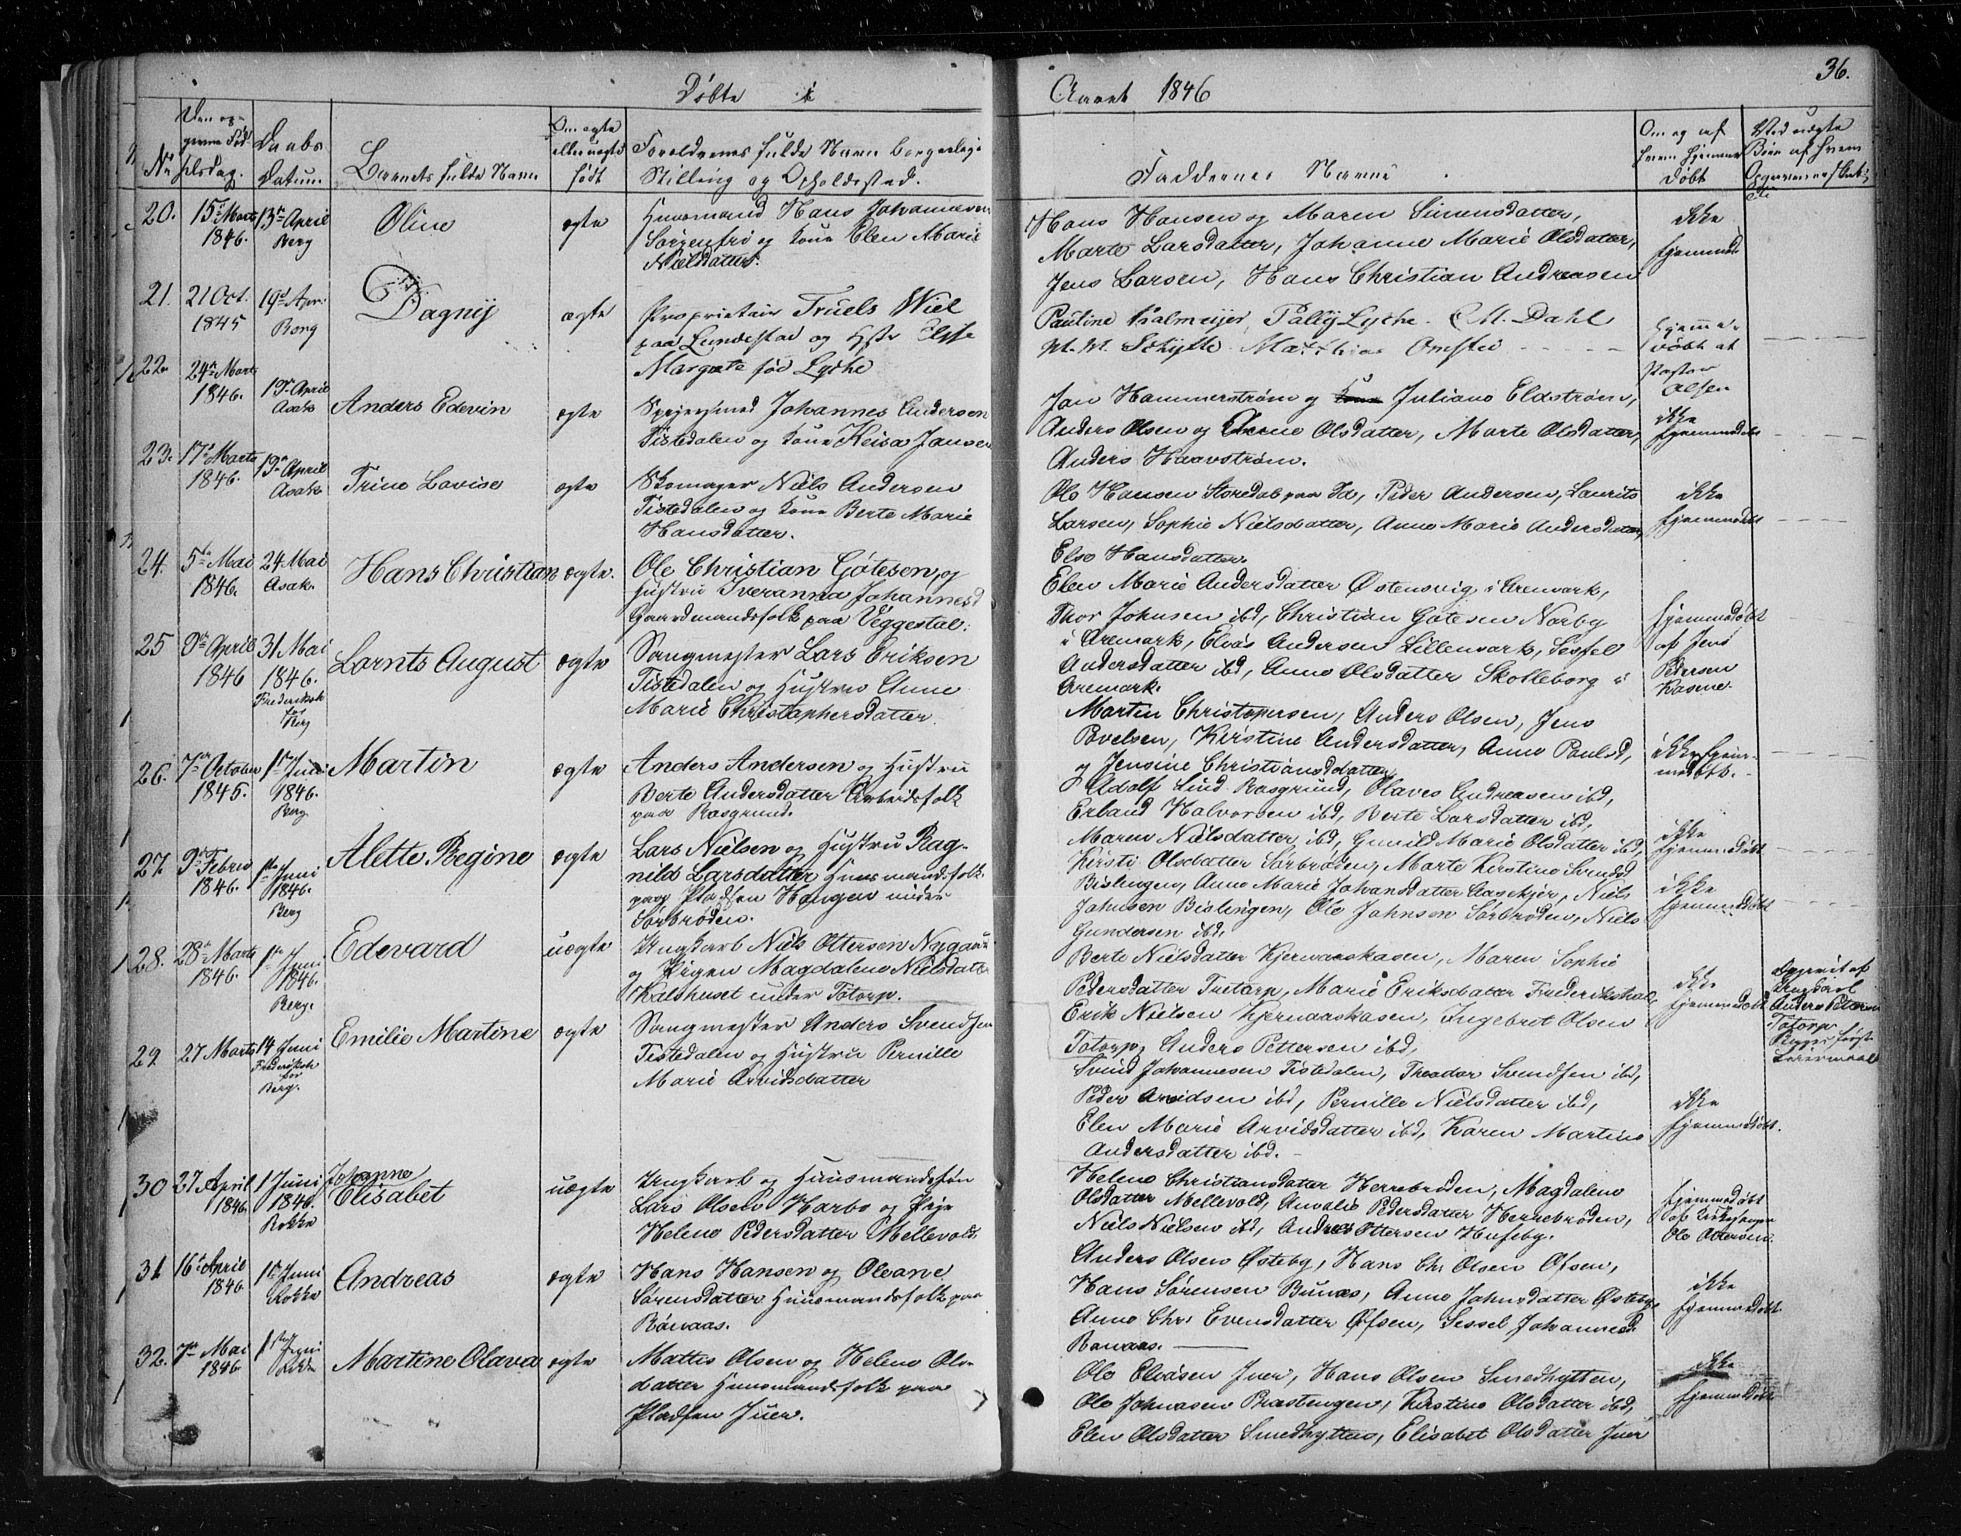 Døbte i Aaret 1846
36.
No
Daabs Datum.
Barnets fulde Navn
Om ægte eller uægte født
Forældrenes fulde Navn borgerlige
Stilling og Opholdssted.
Faddernes Navne
Om og af hvem hjemme døbt
20. 15de Marts 1846. 13de April Berg
Oline
ægte
Huusmand Hans Johannesen
Sørgenfri og kone Elen Marie
Nielsdatter.
Hans Hansen og Maren Simensdatter,
Marte Larsdatter, Johanne Marie Olsdatter,
Jens Larsen, Hans Christian Andreasen
ikke
hjemmed.
21. 21 Oct. 1845 19de Apr. Berg
Dagny
ægte
Proprietair Truels Wiel
paa Lundestad og Hstr Else
Margrete fød Lyche
Pauline Kalmeijer, Lyche. C. M. Dahl
Schytte Matthias
hjemme-
døbt af
Pastor
22. 24de Marts 1846. 19de April Asak
Anders Edevin
ægte
Johannes Andersen
Tistedalen og kone Keisa Jansen
Jan Hammerstrøm og Juliane Eldstrøm,
Anders Olsen og Olsdatter, Marte Olsdatter,
Anders Haavstrøm.
ikke
hjemmedøbt
23. 17de Marts 1846. 19de April Asak
Trine Lovise
ægte
Skomager Niels Andersen
Tistedalen og kone Berte Marie
Hansdatter.
Ole Hansen paa Id, Peder Andersen, Laurits
Larsen, Sophie Nielsdatter, Anne Marie Andersdatter,
Else Hansdatter.
ikke
hjemmedøbt
24. 5te Mai 1846. 24 Mai Asak.
Hans Christian
ægte.
Ole Christian Gøtesen, og
Hustru Iveranna Johannesd
Gaardmandsfolk paa Veggestal.
Elen Marie Andersdatter Østensvig i Aremark,
Thor Johnsen ibd, Christian Gøtesen Norby
i Aremark, Elias Andersen Lillemark, Sessel
Andersdatter ibd, Anne Olsdatter Skolleborg i
Aremark.
hjemmedøbt
af Jens
Pedersen
25 9de April 1846 31 Mai 1846. Frederiksh for Berg
Lornts August
ægte
Saugmester Lars Eriksen
Tistedalen og Hustru Anne
Marie Christophersdatter.
Martin Christopersen, Anders Olsen, Jens
Poelsen, Kirstine Andersdatter, Anne Paulsd,
og Jensine Christiansdatter
ikke hjem-
medøbt.
26. 7de October 1845. 1ste Juni 1846. Berg
Martin
ægte
Anders Andersen og Hustru
Berte Andersdatter Arbeidsfolk
paa Rasgrund.
Adolf Lund Rasgrund, Olaves Andreasen ibd,
Erland Halvorsen ibd, Berte Larsdatter ibd,
Maren Nielsdatter ibd, Gunild Marie Olsdatter ibd,
ikke
hjemmedøbt
27. 9de Febru 1846. 1ste Juni 1846. Berg
Alette Regine
ægte
Lars Nielsen og Hustru Rag-
nild Larsdatter Huusmandsfolk
paa Pladsen Haugen under
Sørbrøden.
Kirsti Olsdatter Sørbrøden, Marte Kirstine Svendsd
Bislingen, Anne Marie Johansdatter Aaskjer, Niels
Johnsen Bislingen, Ole Johnsen Sørbrøden, Niels
Gundersen ibd.
ikke
hjemmedøbt
28. 28de Marts 1846. 1ste Juni 1846. Berg.
Edevard
uægte
Ungkarl Niels Ottersen Nygaard
og Pigen Magdalene Nielsdatter
Kalshuset under Totorp.
Berte Nielsdatter Kjernaaskasen, Maren Sophie
Pedersdatter Tostorp, Marie Eriksdatter Frederikshald,
Erik Nielsen Kjernaaskasen, Ingebret Olsen
Totorp, Anders Pettersen ibd.
ikke
hjemmedøbt
Opgivet af
Anders Pettersen
Totorp
Begges første
Leiermaal
29 27 Marts 14 Juni Frederiksh for Berg.
Emilie Martine
ægte
Saugmester Anders Svendsen
Tistedalen og Hustru Pernille
Marie Arvidsdatter
Svend Johannesen Tistedalen, Theodor Svendsen ibd,
Peder Arvidsen ibd, Pernille Nielsdatter ibd,
Elen Marie Arvidsdatter ibd, Karen Martine
Andersdatter ibd.
ikke
hjemmedøbt.
30 27 April 1846 1 Juni 1846. Rokke
Johanne
Elisabet
uægte
Ungkarl og Huusmandssøn
Lars Olsen Harbo og Pige
Helene Pedersdatter Mellevold.
Helene Christiansdatter Herrebrøden, Magdalene
Olsdatter Mellevold, Amalie Pedersdatter Herrebrøden,
Niels Nielsen ibd, Andreas Ottersen Huseby.
hjemmedøbt
af
Ole Ottersen.
31 16de April 1846 1ste Juni Rokke
Andreas
ægte
Hans Hansen og Oleane
Sørensdatter Huusmandsfolk paa
Rønaas.
Anders Olsen Østeby, Hans Chr Olsen Øfsen,
Hans Sørensen Buaas, Anne Johnsdatter Østeby,
Anne Chr. Evensdatter Øfsen, Sessel Johannesd.
ikke
hjemmedøbt
32. 7de Mai 1846. 1ste Juni Rokke
Martine Olava
ægte
Mattis Olsen og Helene Ols-
datter Huusmandsfolk paa
Pladsen Juer.
Ole Eliasen Juer, Hans Olsen Smedhytten,
Ole Johnasen Brastengen, Kirstine Olsdatter ibd,
Elen Olsdatter Smedhytten, Elisabet Olsdatter Juer
ikke
hjemmedøbt